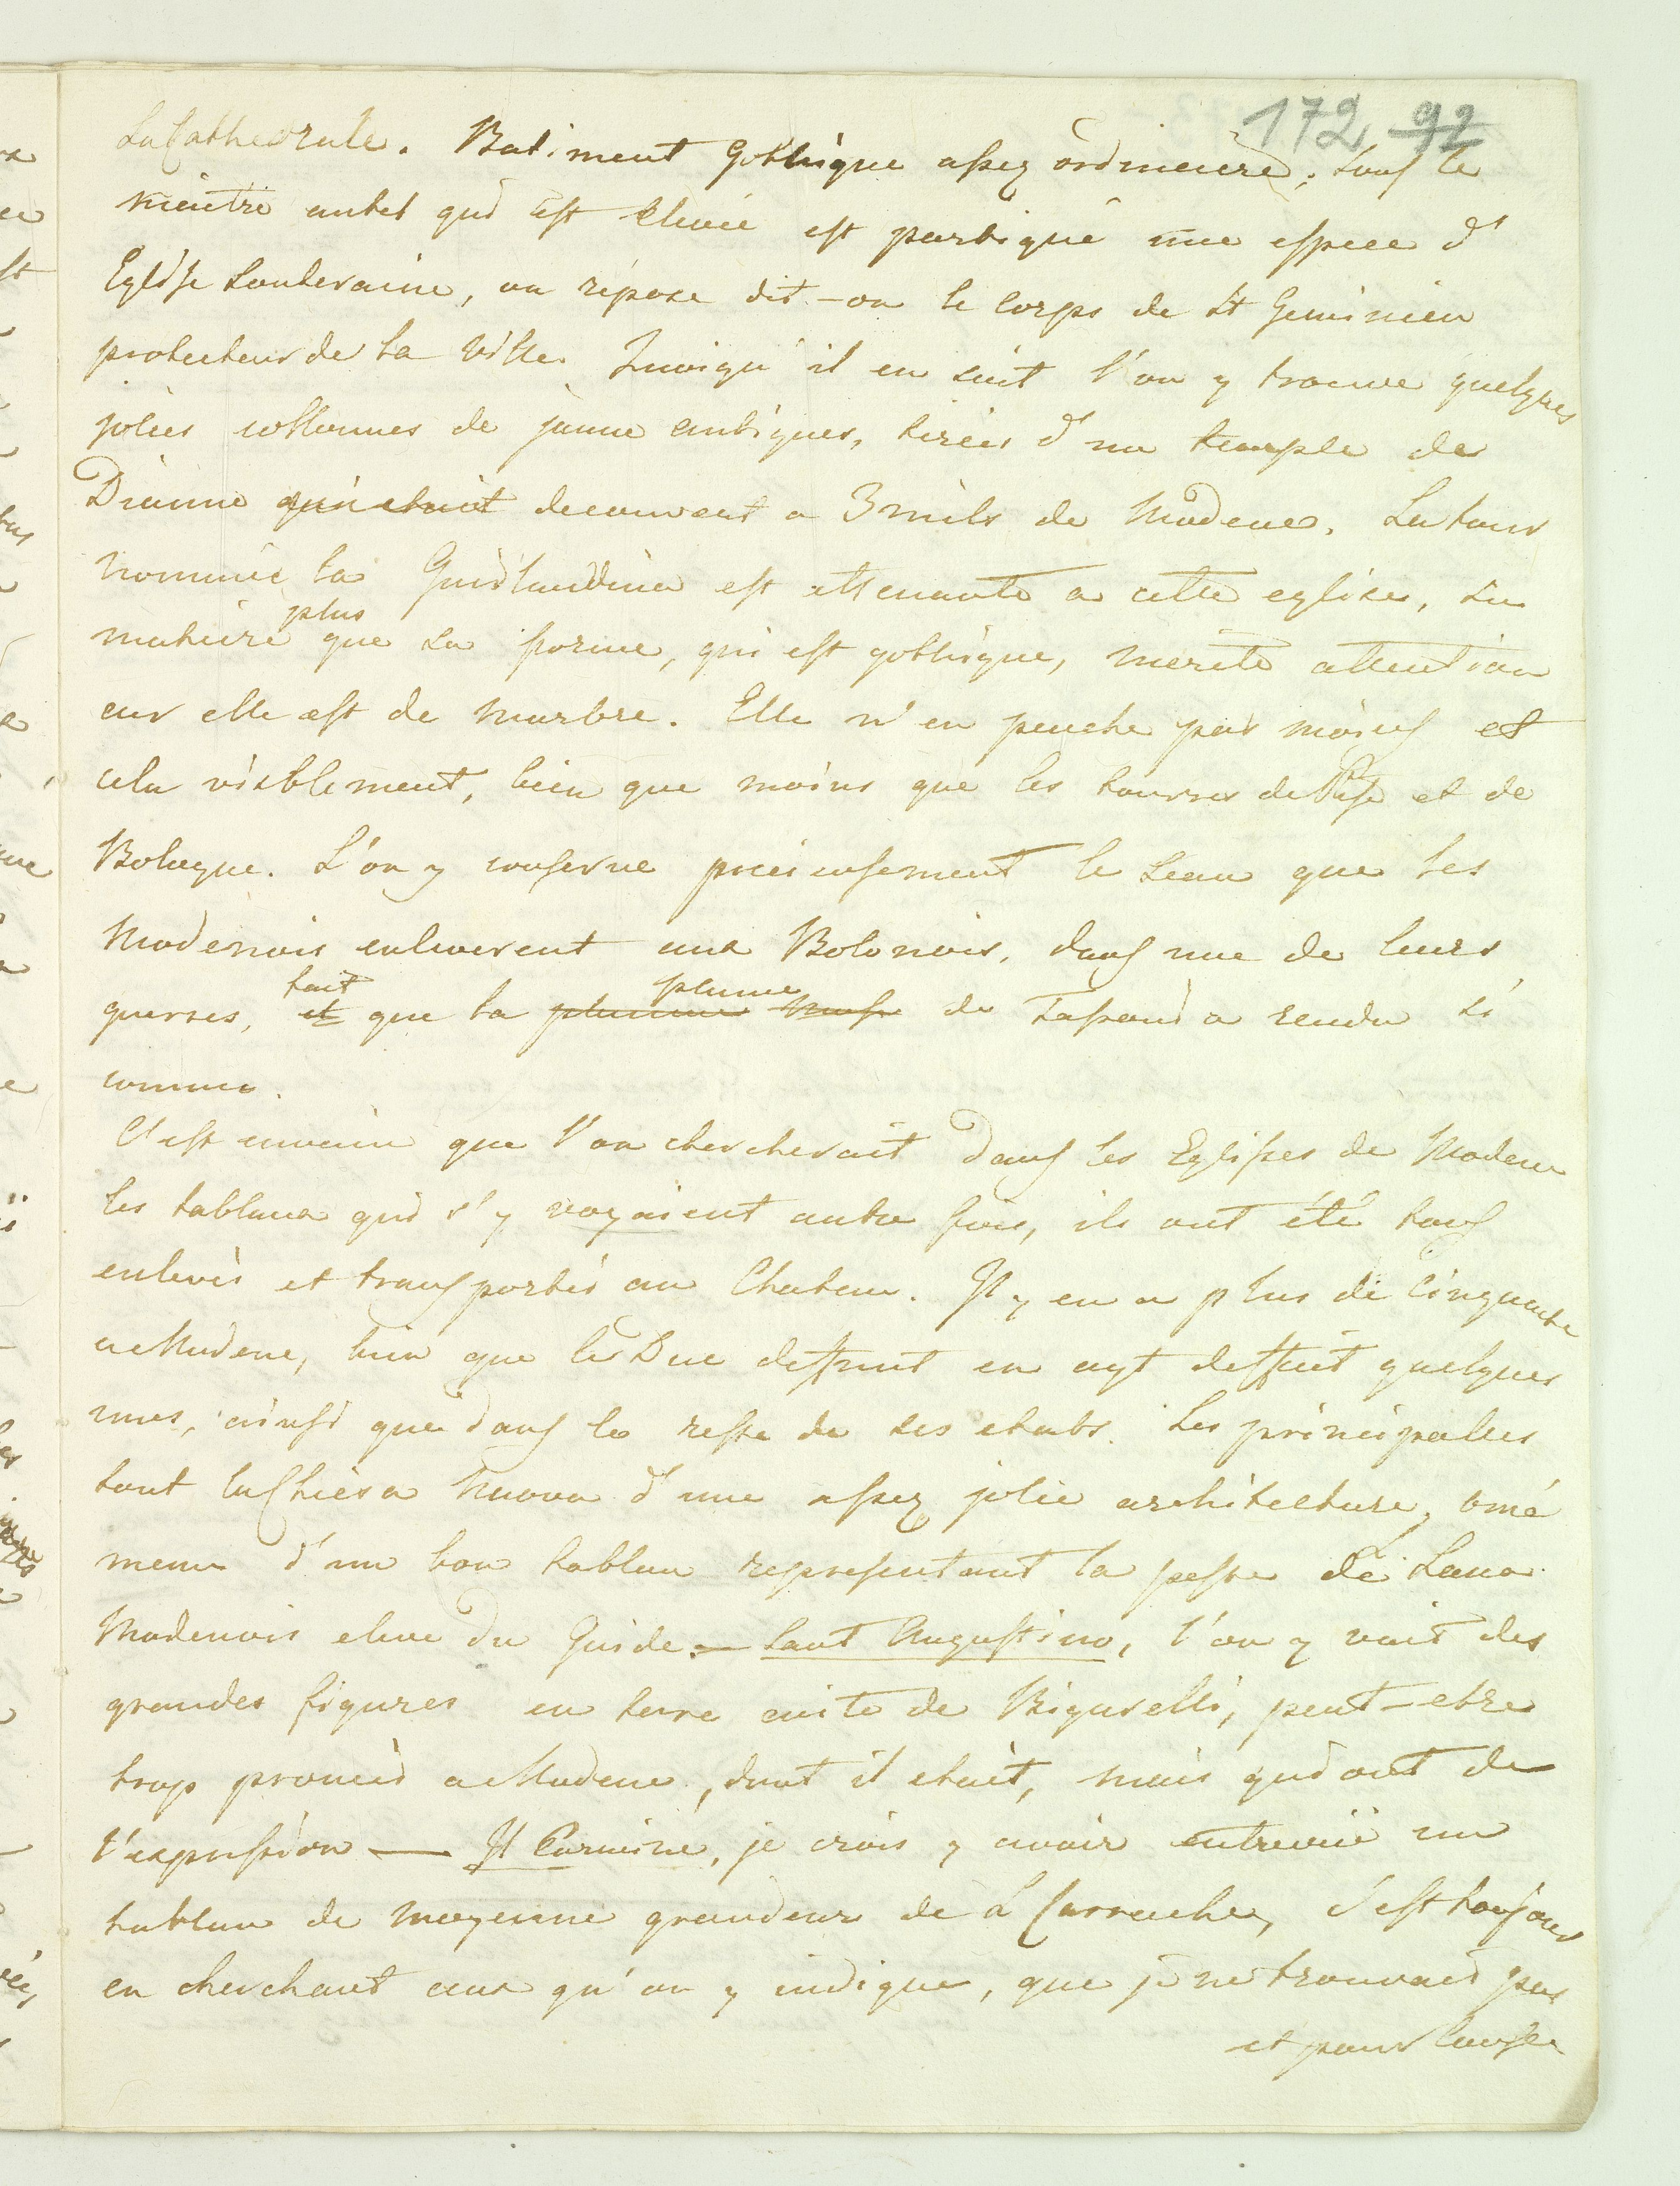 172 92
La Cathedrale. Batiment Gothique assez ordineire; sous le
meitre autel qui est elevée est partiqué une espece d'
Eglise Souteraine, ou repose dit-on le corps de St Geminien
protecteur de la Ville. Quoiqu'il en soit l'on y trouve quelques
jolies collonnes de jaune antiques, tirées d'un temple de
Dianne qui etoit decouvert a 3 mils de Modene. La tour
nommée la Guirlandina est attenante a cette eglise, sa
plus
matiere que sa forme, qui est gothique, merite attention
car elle est de marbre. Elle n'en penche pas moins et
cela visiblement, bien que moins que les tourres de Pise et de
Bologne. L'on y conserve precieusement le Seau que les
Modenois enleverent aux Bolonois, dans une de leurs
fait plume
guerres, et que la plumme Muse de Tassoni a rendu si
connue.
C'est envain que l'on chercherait dans les Eglises de Modene
les tableaux qui s'y voyaient autre fois, ils ont été tous
enlevés et transportés au Chateau. Il y en a plus de Cinquante
a Modene, bien que le Duc deffunt en ayt deffait quelques
unes, ainsi que dans le reste de ses etats. Les principales
sont la Chiesa Nuova d'une assez jolie architecture, orné
meme d'un bon tableau representant la peste de Lana
Modenois eleve du Guide. — Sant Augustino, l'on y voit des
grandes figures en terre cuite de Bigarelli, peut-etre
trop pronées a Modene, dont il etait, mais qui ont de
l'expression — Il Carmine, je crois y avoir entrevüe un
tableau de moyenne grandeur de L Carrache, c'est toujours
en cherchant ceux qu'on y indique, que je ne trouvais pas
et pour cause